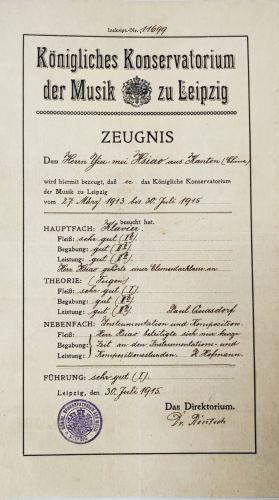 Inskript.-Nr. 11699
Königliches Konservatorium
der Musik zu Leipzig
ZEUGNIS
Dem Herrn Yiu mei Hsiao aus Kanton (China)
wird hiermit bezeugt, daß er das Königliche Konservatorium
der Musik zu Leipzig
vom 27. März 1913 bis 30. Juli 1915
besucht hat.
HAUPTFACH: Klavier.
Fleiß: sehr gut
Begabung: gut
Leistung: gut
Herr Hsiao gehörte einer Elementarklasse an.
THEORIE: (Fugen)
Fleiß: sehr gut (I)
Begabung: gut
Leistung: gut Paul Quasdorf
NEBENFACH: Instrumentation und Komposition.
Fleiß: Herr Hsiao beteiligte sich nur kurze
Begabung: Zeit an den Instrumentations- und
Leistung: Kompositionsstunden. R. Hofmann.
FÜHRUNG: sehr gut (I).
Leipzig, den 30. Juli 1915.
Das Direktorium.
Dr. Röntsch